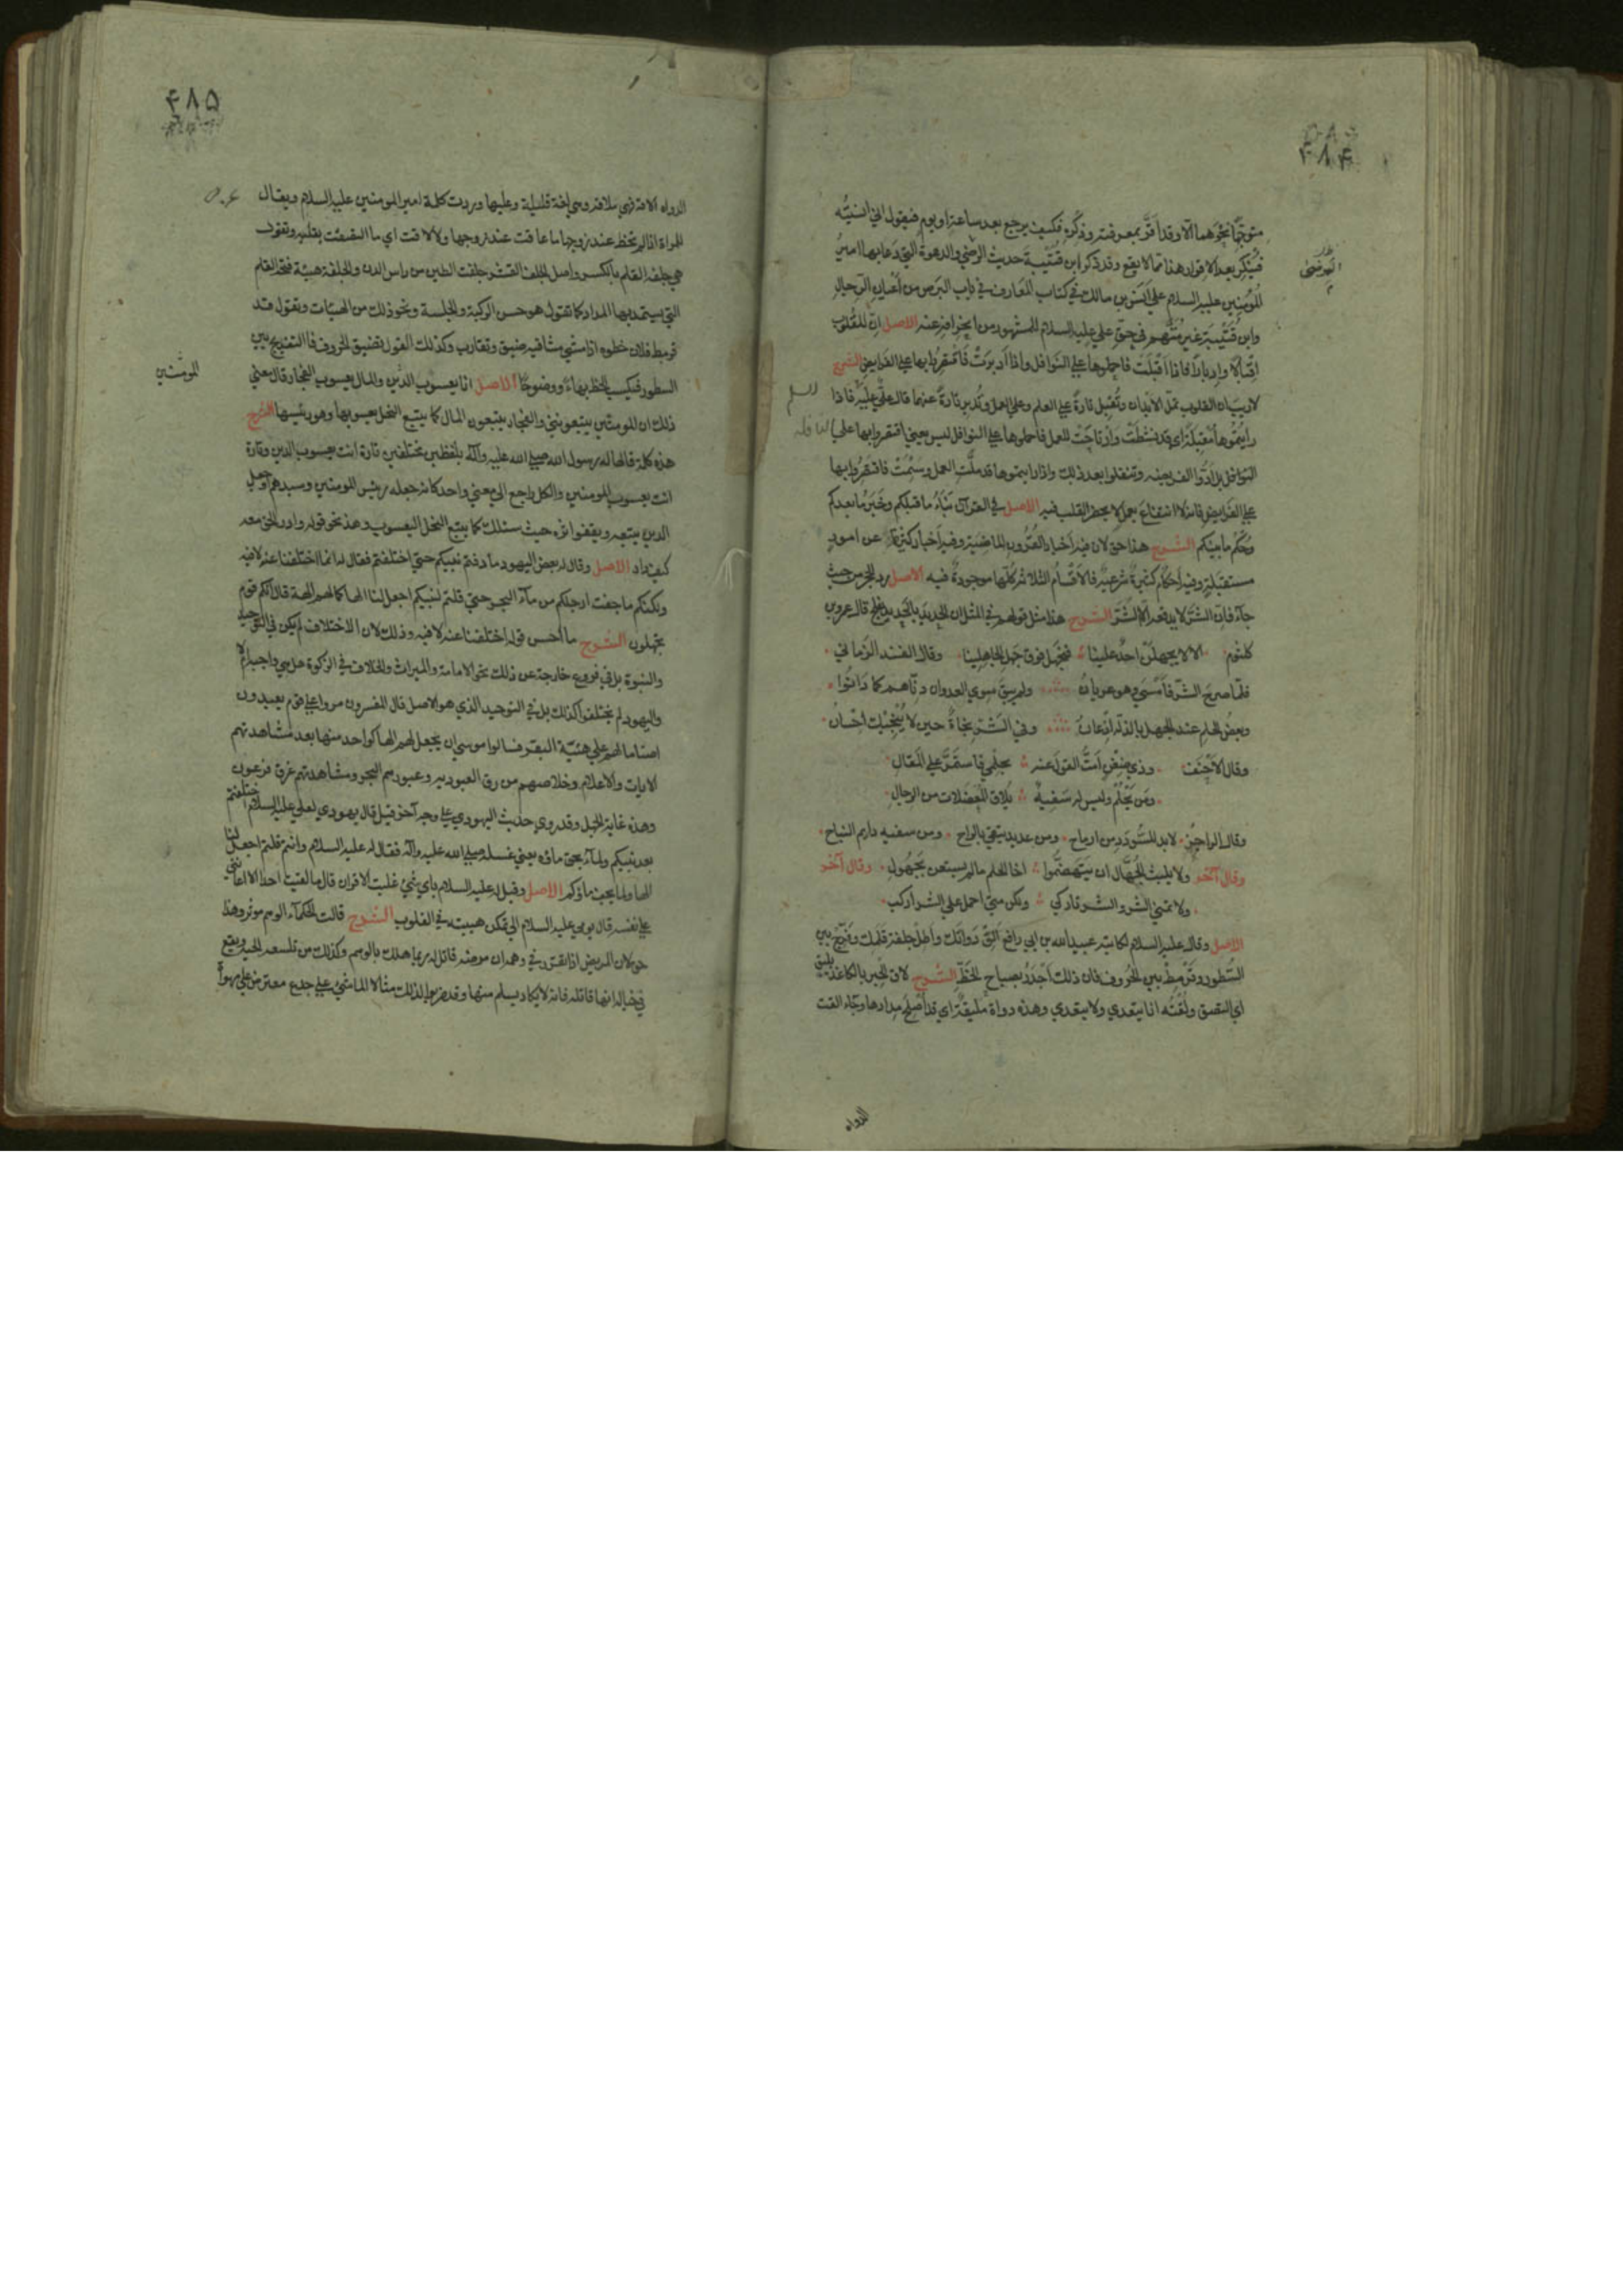 ۴۸۴
متوجّهًا نحوهما الّا وقد أقرّ بمعرفته وذكره فكيف يرجع بعد ساعة او يوم فيقول اني انسيتُه
فيُنكر بعد الاقرار هذا مما لا يقع وقد ذكر ابن قُتَيبة حديث البرص والدعوة التي دَعا بها امير
المُؤمِنين عليه السلام علي اَنَس بن مالك في كتاب المَعارف في باب البَرص من أعيان الرجال
وابن قُتَيبة غير مُتّهم في حق علي عليه السلام للمشهور من انحرافه عنه الاصل انّ للقُلوب
اقبالًا وادبارًا فاذا اَقبَلَت فاحملوها علي النوافل واذا أدبرَت فاقتَصِرُوا بها علي الفرايض الشرح
لا ريب ان القلوب تملّ الابدان وتُقبل تارةً علي العلم وعلي العمل وتُدبر تارةً عنهما قال علي عليه فاذا
رايتُموها مُقبلةً اي قد نشطَت وارتاحَت للعمل فاحملوها علي النوافل ليس يعني اقتصروا بها علي
النوافل بل أدّوا الفريضة وتنفلوا بعد ذلك واذا رايتموها قد ملّت العمل وسَئمَت فاقتصرُوا بها
علي الفرايض فانه لا انتفاع بعمل لا يحضر القلب فيه الاصل في القرآن نَبَأُ ما قبلكم وخَبَرُ ما بعدكم
وحُكم ما بينكم الشرح هذا حق لان فيه أخبار القُرُون الماضية وفيه أخبار كثيرة عن امور
مستقبلة وفيه احكام كثيرةٌ شرعيّة فالاَقسام الثلاثة كلّها موجودةٌ فيه الاصل رد الحجر من حيث
جآء فانّ الشرّ لا يدفعه الّا الشّر الشرح هذا مثل قولهم في المثل ان الحديد بالحديد يفلح قال عمرو بن
كلثوم الا لا يجهلن احدٌ علينا فنجهل فوق جهل الجاهلينا وقال الفند الزماني
فلمّا صرح الشرّ فأمْسي وهو عريانُ ولم يبق سوي العدوان دنّاهم كما دانُوا
وبعضُ الحلم عند الجهل بالذلة اذعانُ وفي الشر نجاةٌ حين لا يُنجيك احسانُ
وقال الاَحنف وذي ضِغنٍ أمتُّ القول عنه بحلمي فاستمَرّ علي المقال
ومن يَحْلُم وليس له سَفيهٌ يلاق المُعضلات من الرجال
وقال الراجز لا بد للسُّودَد من ارماح ومن عديد يتقي بالراح ومن سفيه دايم النباح
وقال آخر ولا يلبث الجُهّال ان يَتَهَضّموا اخا الحلم ما لم يستعن بجَهُول وقال آخر
ولا اتمني الشر والشر تاركي ولكن متي احمل علي الشر اركب
الاصل وقال عليه السلام لكاتبه عبيد الله بن ابي رافع اَلِق دَوَاتَك وأطِل جلفة قَلَمك وفَرّج بين
السُّطور وقَرْمِطْ بين الحُرُوف فان ذلك أجدَرُ بصباح الخَطّ الشرح لاق الحِبر بالكاغذ يليق
اي التصق ولُقتُه انا يتعدي ولا يتعدي وهذه دواة مَليقةٌ اي قد أُصْلِح مِدادها وجاء القت
الدواه
۴۸۵
الدواه الاقة فهي ملاقة وهي لغة قليلة وعليها وردت كلمة امير المومنين عليه السلام ويقال
للمراة اذا لم تحظ عند زوجها ما عاقت عند زوجها ولا لاقت اي ما التصقت بقلبه وتقول
هي جلفة القلم بالكسر واصل الجلف القشر جلفت الطين من راس الدن والجلفة هيئة فتحة القلم
التي يستمد بها المداد كما تقول هو حسن الركبة والجلسة ونحو ذلك من الهيئات وتقول قد
قرمط فلان خطوه اذا مشي مشيا فيه ضيق وتقارب وكذلك القول في تضييق الحروف فاما التفريج بين
السطور فيكسب الخط بهاءً ووضوحًا الاصل انا يعسوب الدّين والمال يعسوب الفجار وقال معني
المومنين
ذلك ان المومنين يتبعونني والفجار يتبعون المال كما يتبع النحل يعسوبها وهو رئيسها الشرح
هذه كلمة قالها له رسول الله صلي الله عليه وآله بلفظين مختلفين تارة انت يعسوب الدين وتارة
انت يعسوب المومنين والكل راجع الي معني واحد كانه جعله رئيس المومنين وسيدهم او جعل
الدين يتبعه ويقفوا اثره حيث سلك كما يتبع النحل اليعسوب وهذا نحو قوله وادر الحق معه
كيف دار الاصل وقال له بعض اليهود ما دفنتم نبيكم حتي اختلفتم فقال له انما اختلفنا عنه لا فيه
ولكنكم ما جفت ارجلكم من مآء البحر حتي قلتم لنبيكم اجعل لنا الها كما لهم الهة قال انكم قوم
تجهلون الشرح ما احسن قوله اختلفنا عنه لا فيه وذلك لان الاختلاف لم يكن في التوحيد
والنبوة بل في فروع خارجة عن ذلك نحو الامامة والميراث والخلاف في الزكوة هل هي واجبة ام لا
واليهود لم يختلفوا كذلك بل في التوحيد الذي هو الاصل قال المفسرون مروا علي قوم يعبدون
اصناما لهم علي هيئة البقر فسالوا موسي ان يجعل لهم الها كواحد منها بعد مشاهدتهم
الايات والاعلام وخلاصهم من رق العبودية وعبورهم البحر ومشاهدتهم غرق فرعون
وهذه غاية الجهل وقد روي حديث اليهودي علي وجه آخر قيل قال يهودي لعلي عليه السلام اختلفتم
بعد نبيكم ولمّا يجف ماؤه يعني غسله صلي الله عليه وآله فقال له عليه السلام وانتم قلتم اجعل لنا
الها ولما يجف ماؤكم الاصل وقيل له عليه السلام باي شيء غلبت الاقران قال ما لقيت احدا الا اعانني
علي نفسه قال يومي عليه السلام الي تمكن هيبته في القلوب الشرح قالت الحكمآء الوهم موثر وهذا
حق لان المريض اذا تقرر في وهمه ان مرضه قاتل له ربما هلك بالوهم وكذلك من تلسعه الحية ويقع
في خياله انها قاتلة فانه لا يكاد يسلم منها وقد ضربوا لذلك مثالا الماشي علي جذع معترض علي مهواة